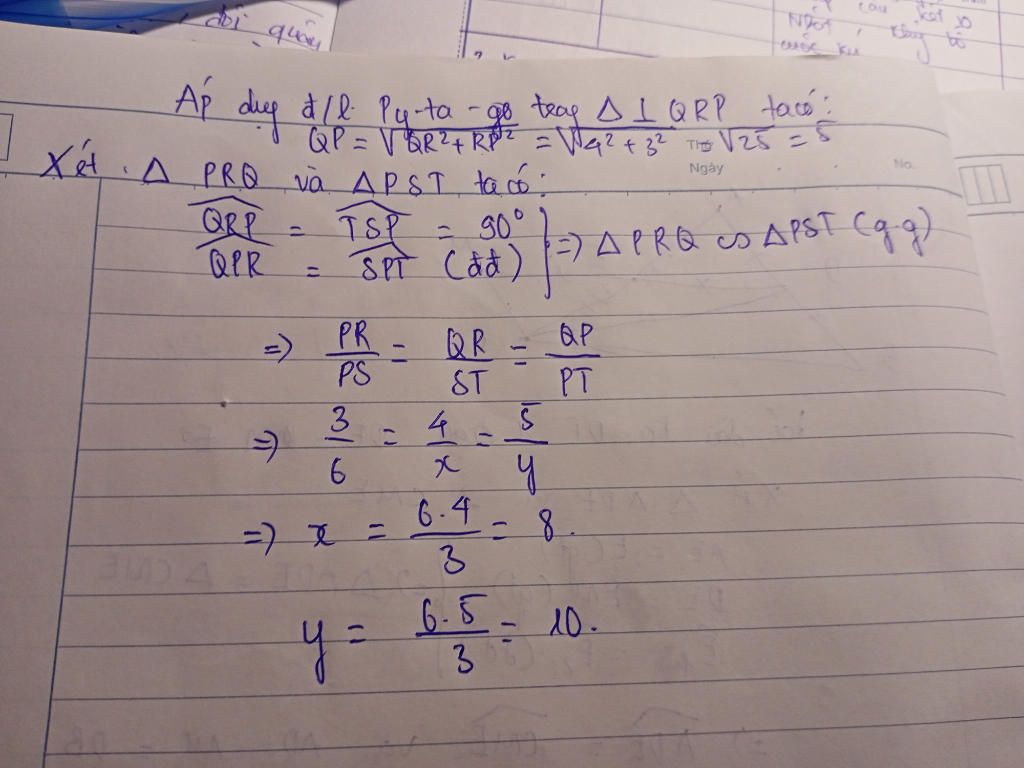 đôi quân
câu kết so
Áp dụg đ/l Py-ta-go trog Δ ⊥ QRP ta có:
QP = √QR² + RP² = √4² + 3² = √25 = 5
Ngày
No.
Xét Δ PRQ và ΔPST ta có:
QRP = TSP = 90°
QPR = SPT (đđ)
=> Δ PRQ ∽ ΔPST (g-g)
=> PR/PS = QR/ST = QP/PT
=> 3/6 = 4/x = 5/y
=> x = 6.4/3 = 8.
y = 6.5/3 = 10.